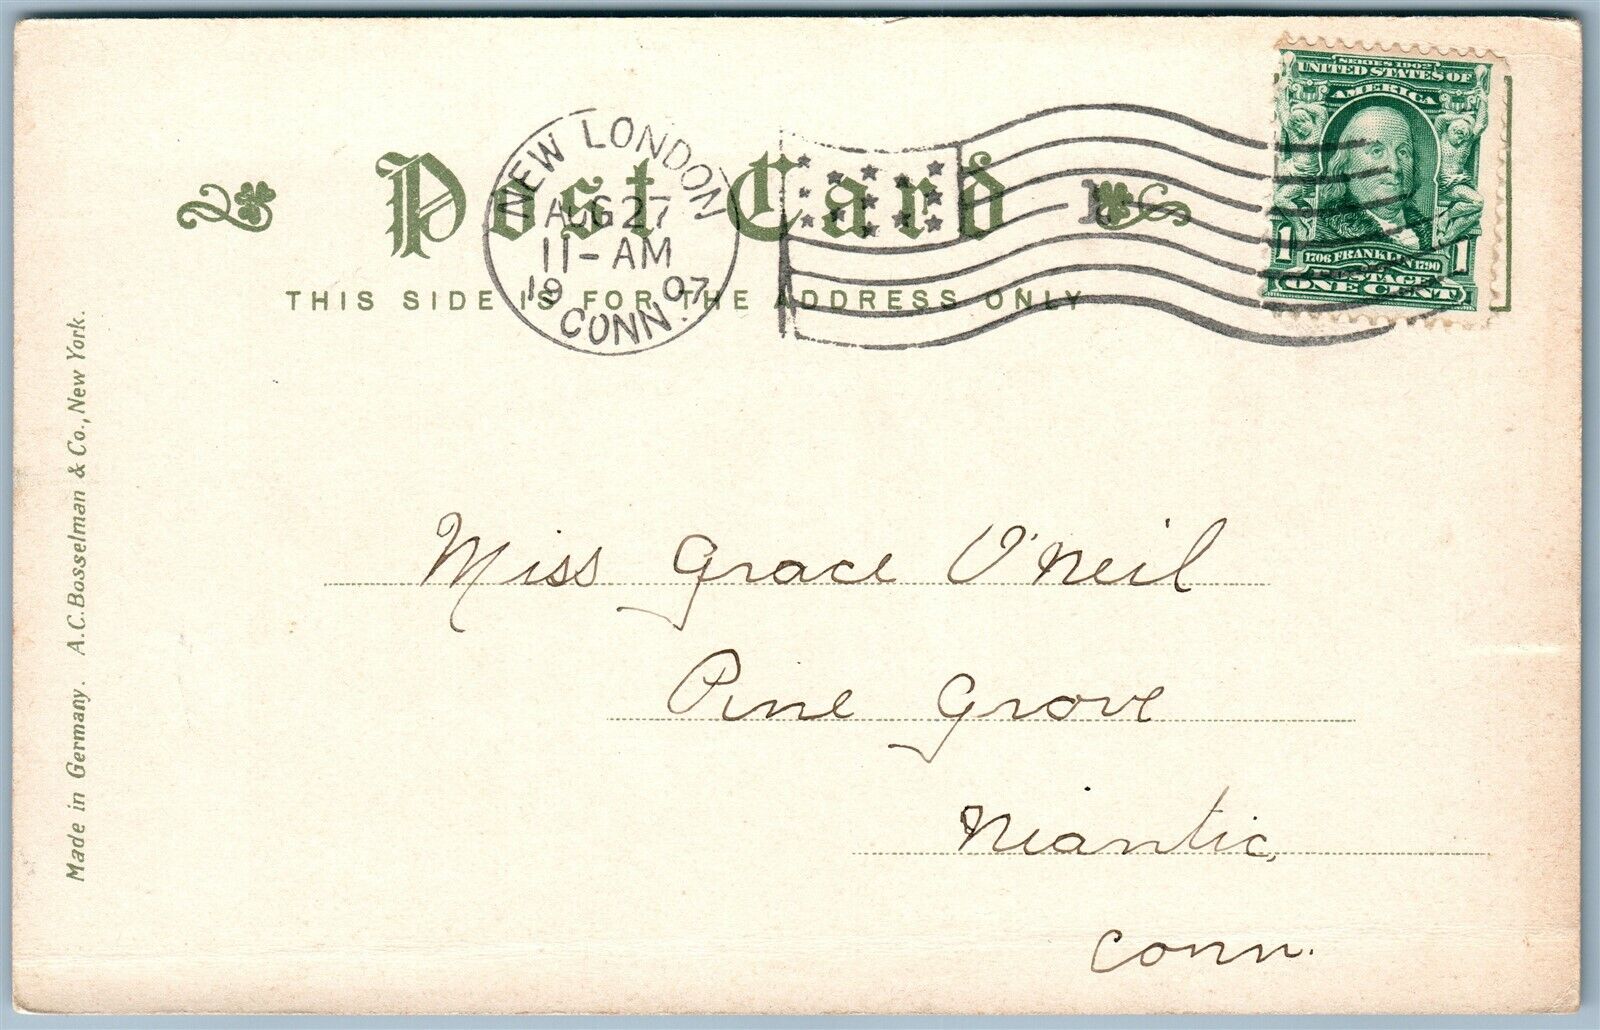 Post Card
THIS SIDE IS FOR THE ADDRESS ONLY
NEW LONDON
AUG 27
11-AM
1907
CONN.
1
SERIES 1902
UNITED STATES OF
AMERICA
1 1
1706 FRANKLIN 1790
POSTAGE
ONE CENT
Made in Germany. A.C. Bosselman & Co., New York.
Miss Grace O'Neil
Pine Grove
Niantic,
Conn.